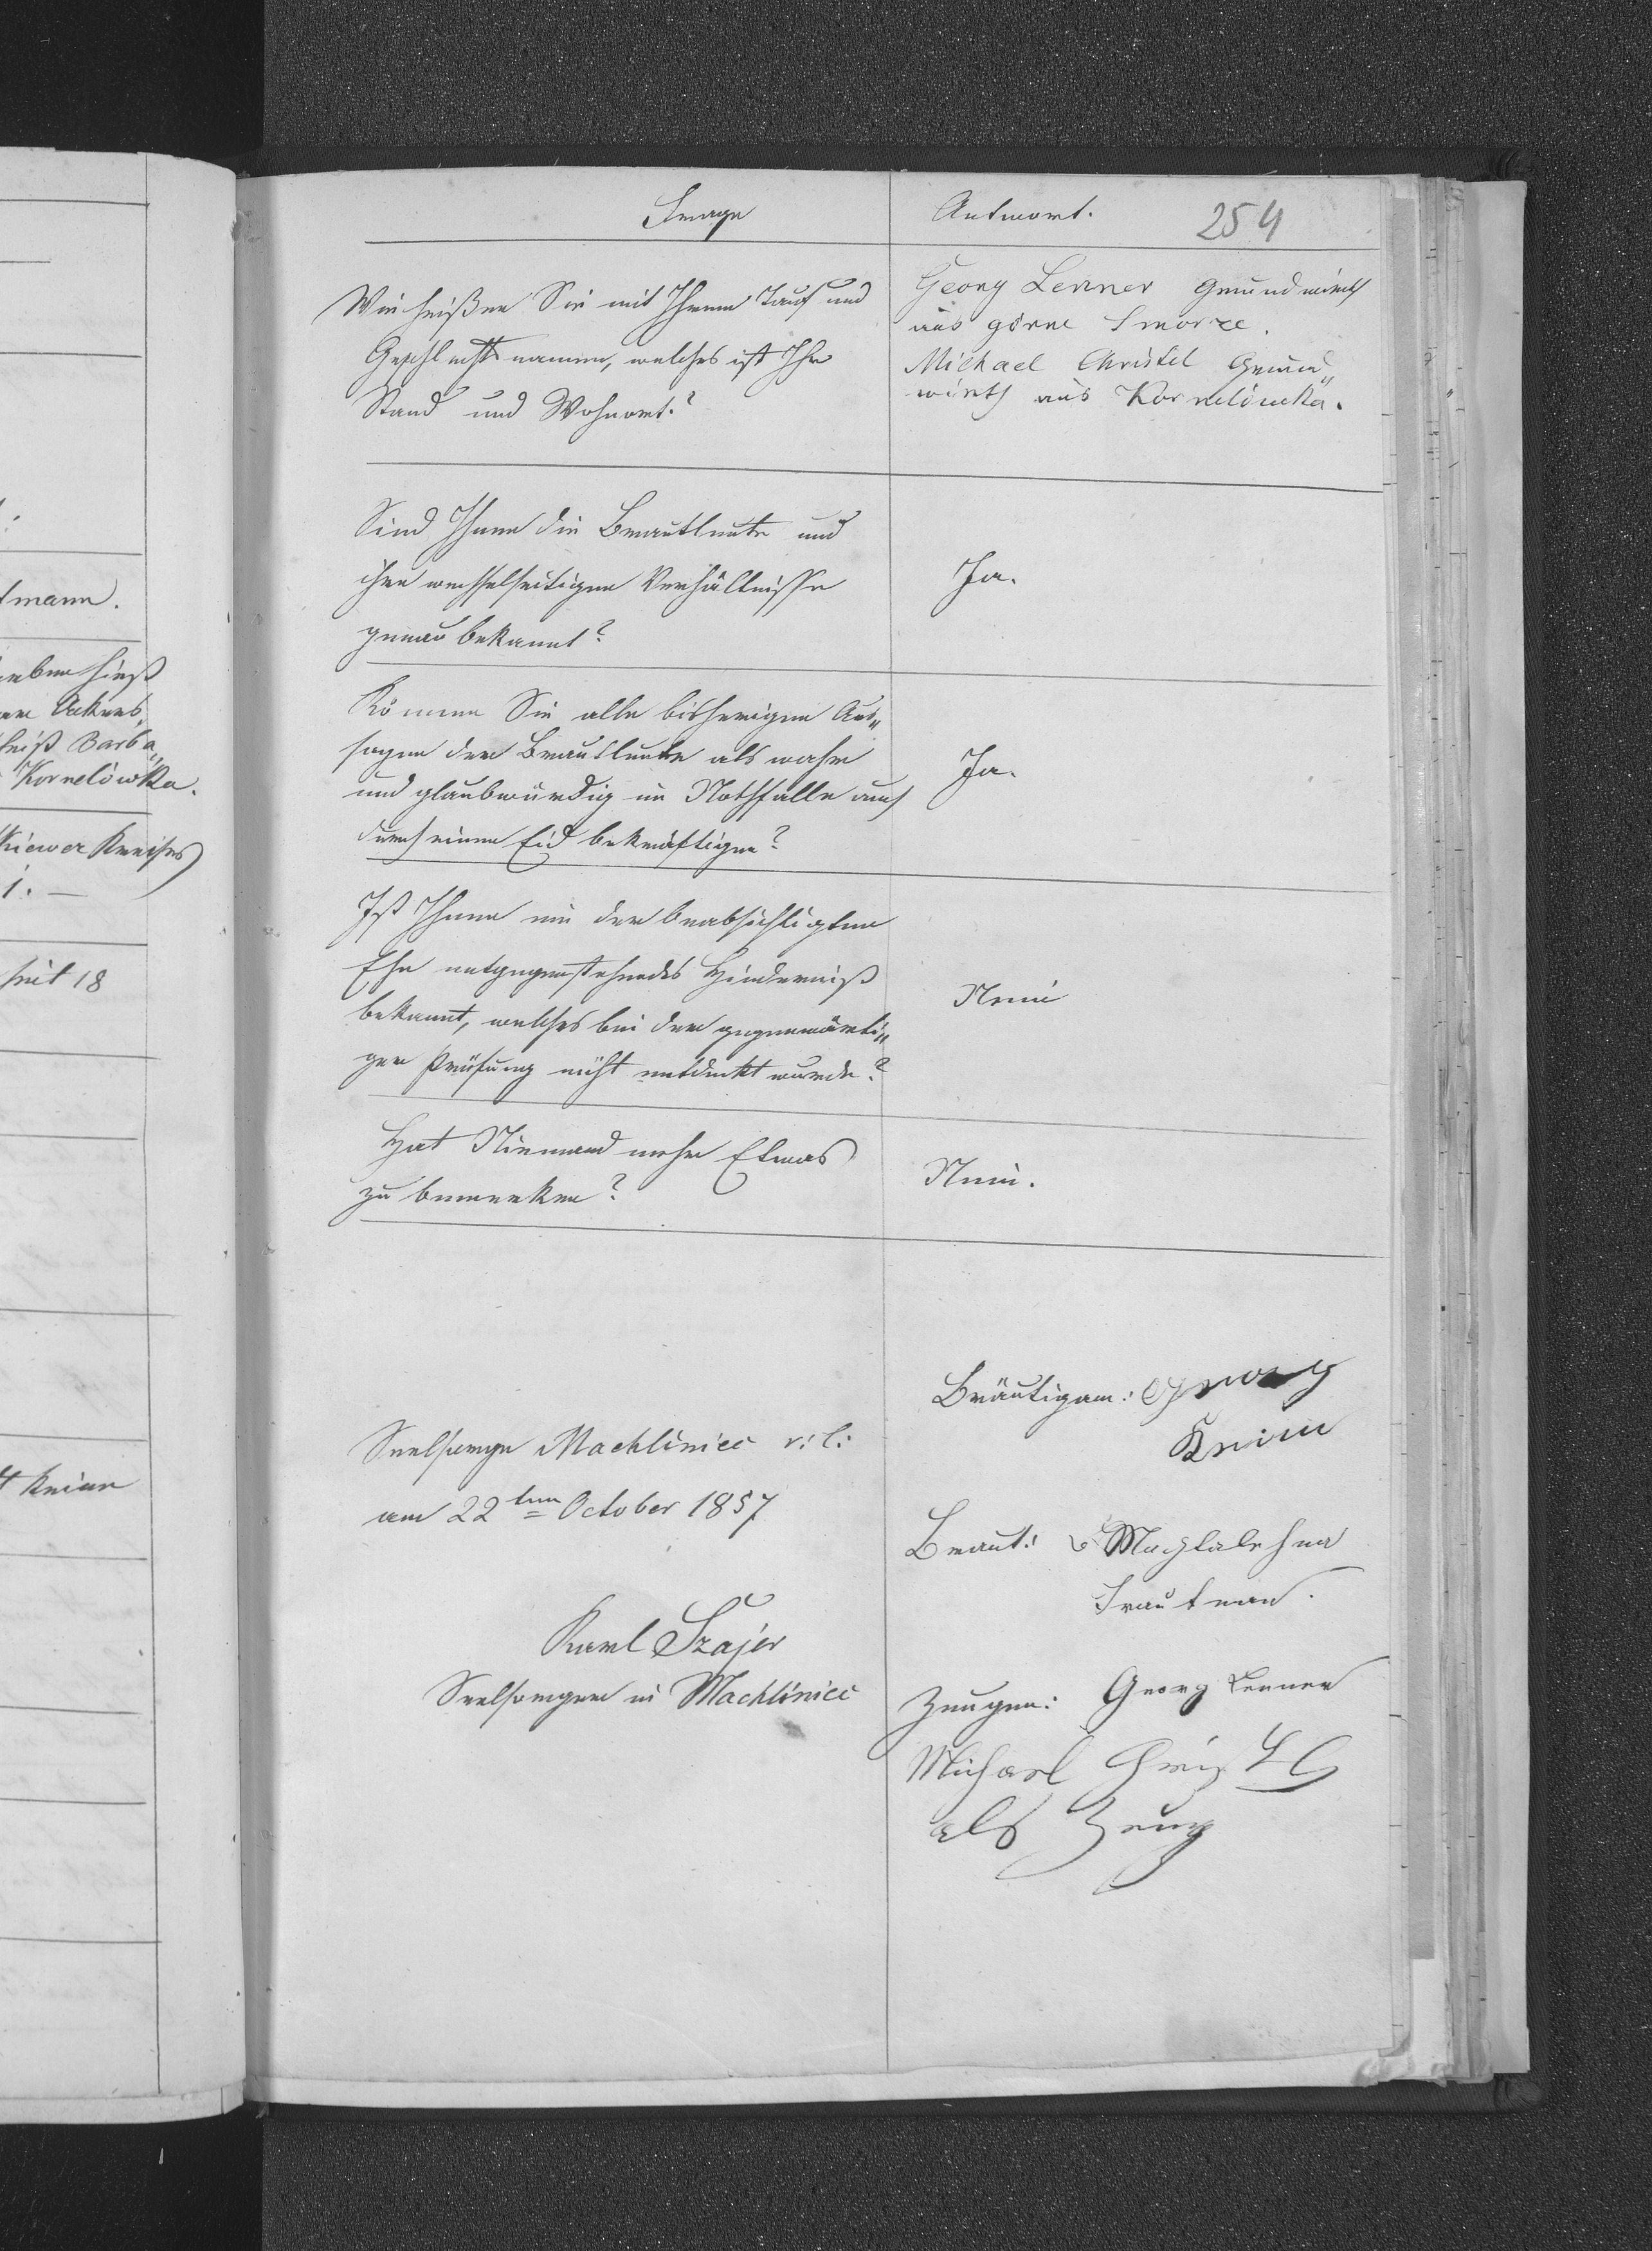 tmann.
Kornelówka.
seit 18
Frage
Antwort.
254
Wie heißen Sie mit Ihrem Tauf und
Geschlechtsnamen, welches ist Ihr
Stand und Wohnort?
Georg Lenner Grundwirth
aus górne Smorze.
Michael Christel Grund„
wirth aus Kornelówka.
Sind Ihnen die Brautleute und
ihre wechselseitigen Verhältnisse
genau bekannt?
Ja.
Können Sie alle bisherigen Aus„
sagen der Brautleute als wahr
und glaubwürdig im Nothfalle auch
durch einen Eid bekräftigen?
Ja.
Ist Ihnen ein der beabsichtigten
Ehe entgegenstehendes Hinderniß
bekannt, welches bei der gegenwärti„
gen Prüfung nicht entdeckt wurde?
Nein
Hat Niemand mehr Etwas
zu bemerken?
Nein.
Seelsorge Machliniec r: l:
am 22ten October 1857
Karl Szajer
Seelsorger in Machliniec
Bräutigam: Georg
Braut: Magdalehna
Trautman.
Zeugen: Georg Lenner
Michael Christel
als Zeug